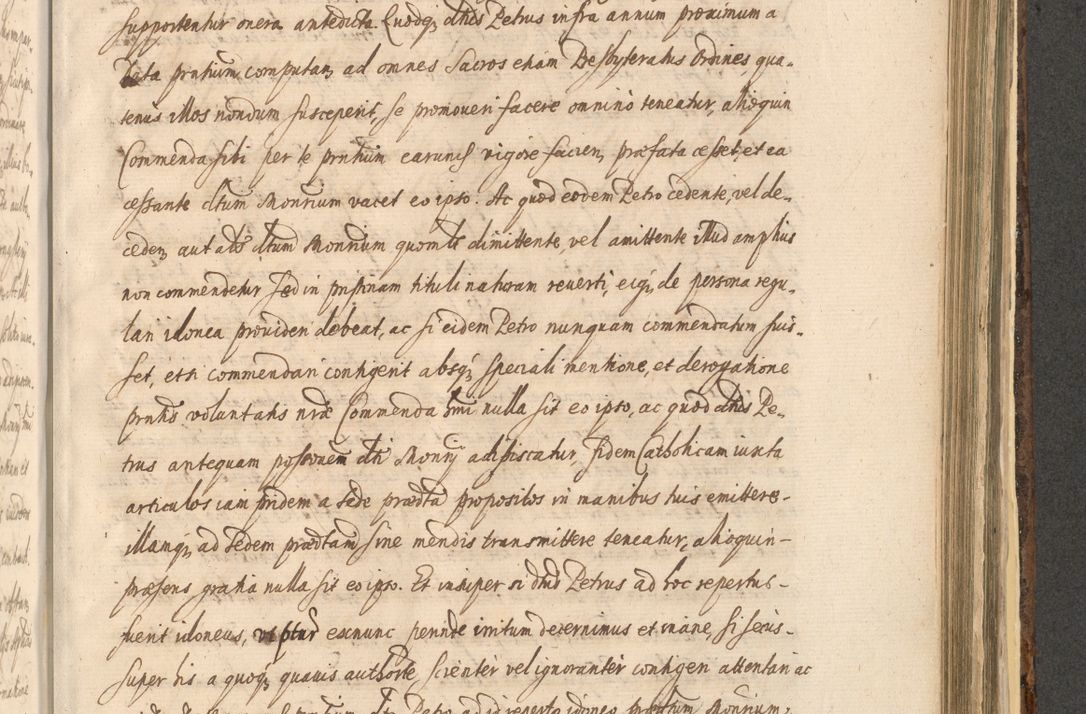 supportentur onera antedicta Quodq; dictus Petrus infra annum proximum a
data pntium computan, ad omnes Sacros etiam Presbyteratus Ordines, qua-
tenus illos nondum susceperit, se promoveri facere omnino teneatur, alioquin
Commenda sibi per te pntium earumq vigore facien, præfata cesset, et ea
cessante dtum Monrium vacet eo ipso. Ac quod eodem Petro cedente, vel de-
ceden, aut als dtum Monrium quomlt dimittente, vel amittente illud amplius
non commendetur, sed in pristinam tituli naturam reverti, eiq; de persona regu-
lari idonea provideri debeat, ac si eidem Petro nunquam commendatum fuis-
set, et si commendari contigerit absq; speciali mentione, et derogatione
pntis voluntatis nræ Commenda hmi nulla sit eo ipso, ac quod dtus Pe-
trus antequam possionem dti Monrij adipiscatur, fidem Catholicam iuxta
articulos iam pridem a sede prædta propositos in manibus tuis emittere-
illamq; ad Sedem prædtam sine mendis transmittere teneatur, alioquin-
præsens gratia nulla sit eo ipso. Et insuper si dtus Petrus ad hoc repertus-
fuerit idoneus, ut ptur exnunc perinde irritum decernimus et inane, si secus-
super his a quoq; quavis authorte, scienter vel ignoranter contigeri attentari ac
Petro ad id reperto idoneo Monrium